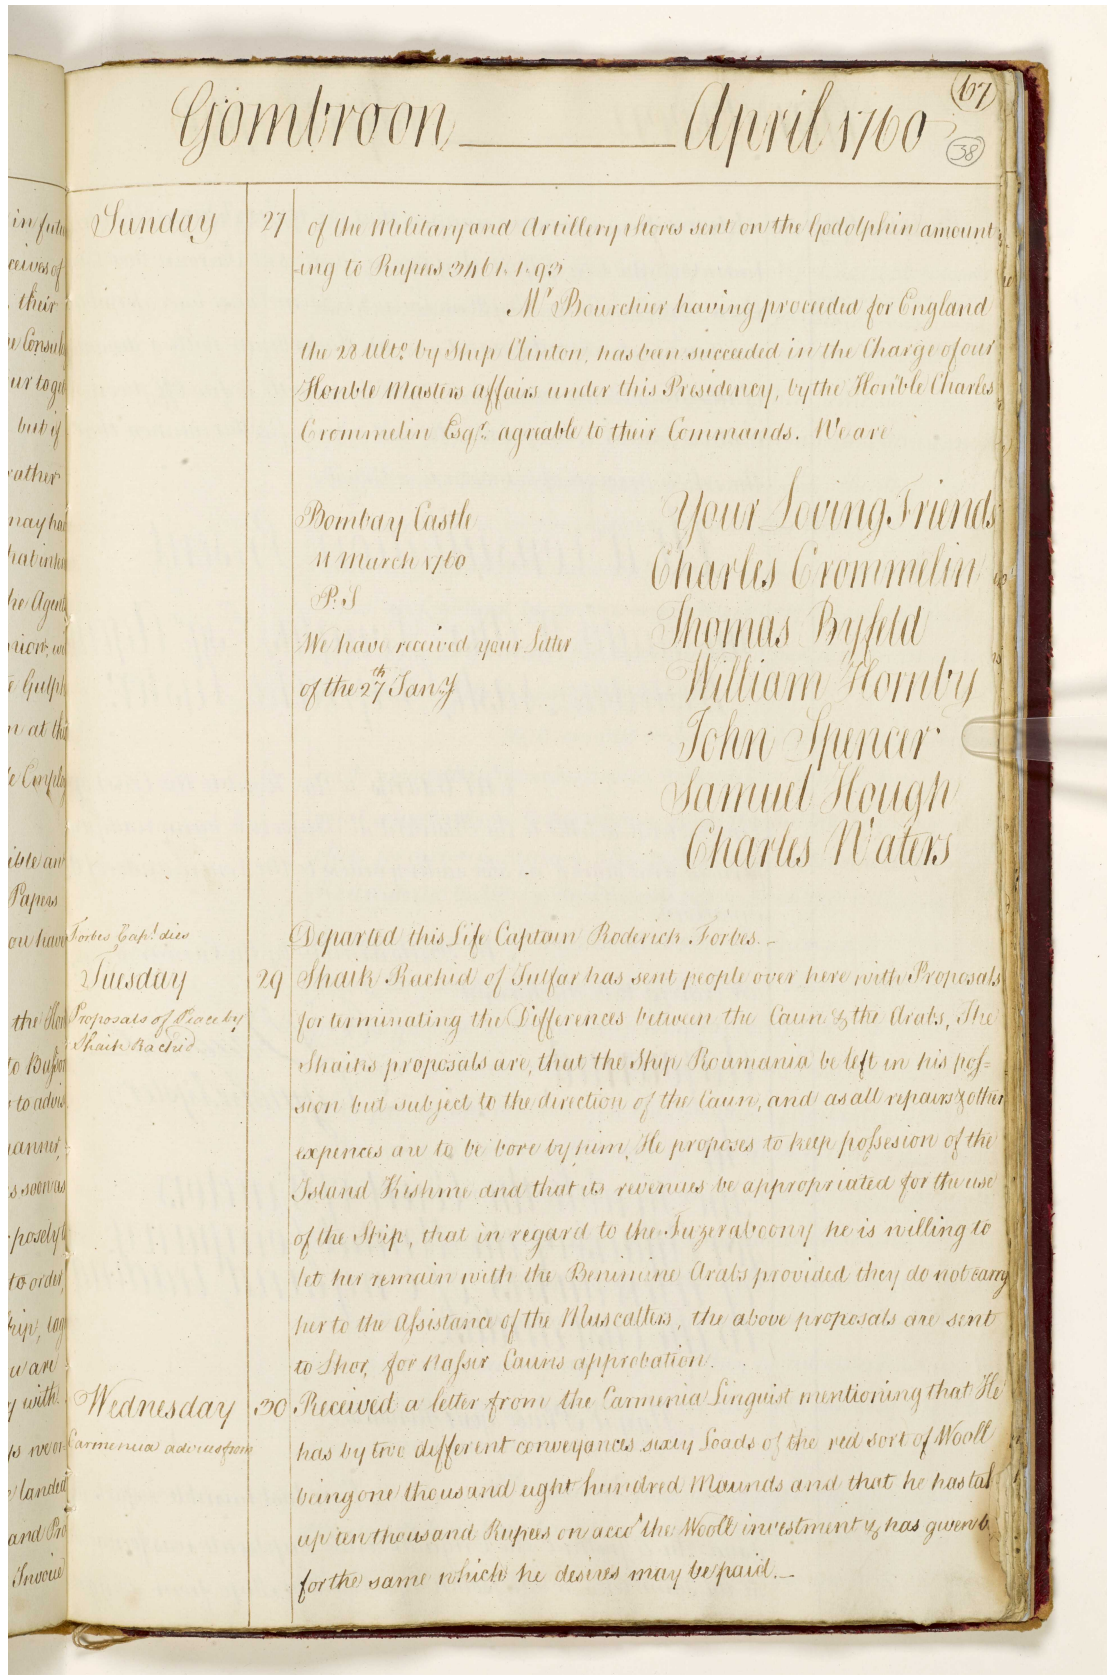 67
Gombroon April 1760
38
Sunday 27 of the Military and Artillery stores sent on the Godolphin amount
ing to Rupees 3461. 1. 93
Mr. Bourchier having proceeded for England
the 28 Ulto. by Ship Clinton, has been succeeded in the Charge of our
Honble Masters affairs under this Presidency, by the Honble Charles
Crommelin Esqr. agreable to their Commands. We are
Bombay Castle
11 March 1760
P.S
We have received your Letter
of the 27th Jany
Your Loving Friends
Charles Crommelin
Thomas Byfeld
William Hornby
John Spencer
Samuel Hough
Charles Waters
Forbes Capt. dies
Departed this Life Captain Roderick Forbes.
Tuesday 29 Shaik Rachid of Julfar has sent people over here with Proposals
Proposals of Peace by
Shaik Rachid
for terminating the Differences between the Caun & the Arabs, The
Shaiks proposals are, that the Ship Roumania be left in his pos=
sion but subject to the direction of the Caun, and as all repairs & other
expences are to be bore by him, He proposes to keep possesion of the
Island Kishme and that its revenues be appropriated for the use
of the Ship, that in regard to the Fuzeraboony he is willing to
let her remain with the Benimine Arabs provided they do not carry
her to the Assistance of the Muscatters, the above proposals are sent
to Shor, for Nassir Cauns approbation.
Wednesday 30 Received a letter from the Carmenia Linguist mentioning that He
Carmenia advices from
has by two different conveyances sixty Loads of the red sort of Wooll
being one thousand eight hundred Maunds and that he has
up ten thousand Rupees on acco. the Wooll investment & has given
for the same which he desires may be paid.